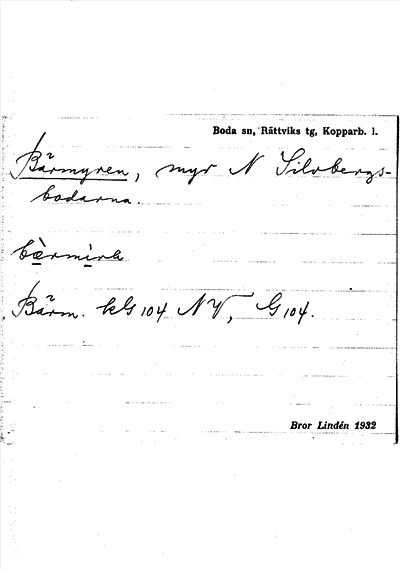 Boda sn, Rättviks tg, Kopparb. l.
Bärmyren, myr N Silvbergs-
bodarna.
bærmirh
Bärm. kls 104 NV, G 104.
Bror Lindén 1932